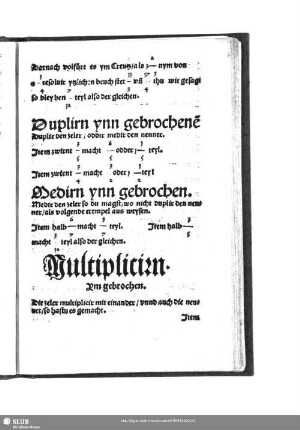 Darnach volfürt es ym Creutz als — nym von
resoluir ytlichen bruch stet — vñ — thu wie gesagt
so bleyben — teyl also der gleichen.
Duplirn ynn gebrochenē
Duplir den zeler / odder medir den nenner.
3 6 3
Item zwirnt — macht — odder — teyl.
5 5
3 3
Item zwirnt — macht oder — teyl
4 2 2
Medirn ynn gebrochen.
Medir den zeler so du magst / wo nicht duplir den nen
ner / als volgende exempel aus weysen.
6 3
Item halb — macht — teyl. Item halb —
7 7 5
3
macht — teyl also der gleichen.
10
Multiplicirn.
Ym gebrochen.
Die zeler multiplicir mit einander / vnnd auch die nen
ner / so hastu es gemacht.
Item
SLUB